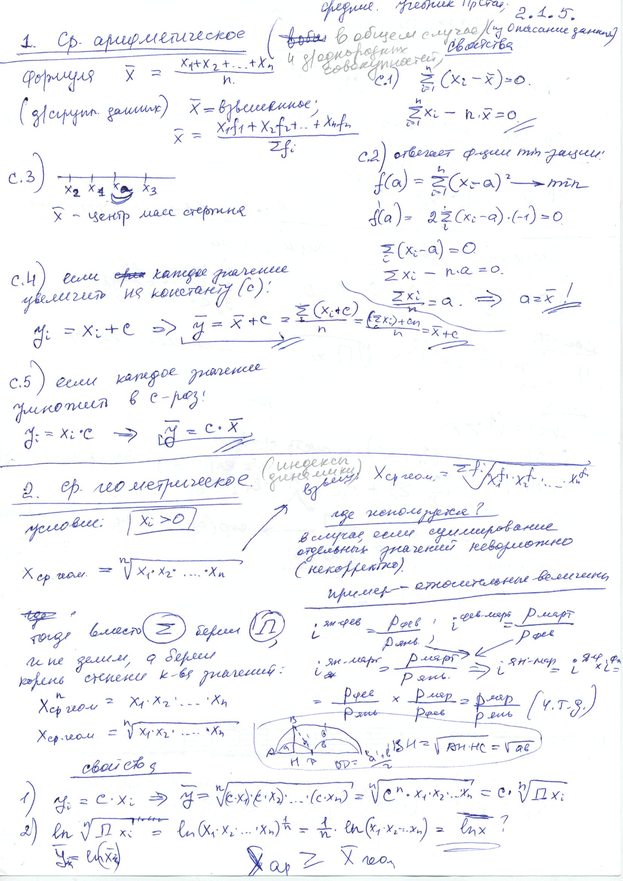 средние. Учебник 2.1.5.
1. Ср. арифметическое (в общем случае (у описание данных)
и д/однородных совокупностей)
формула x̄ = (x₁+x₂+...+xₙ)/n
(д/групп. данных) x̄ = взвешенное;
x̄ = (x₁f₁ + x₂f₂ + ... + xₙfₙ)/Σfᵢ
свойства
с.1) Σᵢ₌₁ⁿ (xᵢ - x̄) = 0.
Σᵢ₌₁ⁿ xᵢ - n·x̄ = 0
с.2) отвечает ф-ции min-зации:
f(a) = Σᵢ₌₁ⁿ (xᵢ-a)² → min
f'(a) = 2Σᵢ(xᵢ-a)·(-1) = 0
Σ(xᵢ-a) = 0
Σxᵢ - n·a = 0.
Σxᵢ/n = a. ⇒ a = x̄!
с.3) x₂ x₁ a x₃
x̄ - центр масс стержня
с.4) если каждое значение
увеличить на константу (с):
yᵢ = xᵢ + c ⇒ ȳ = x̄ + c = Σ(xᵢ+c)/n = ((Σxᵢ)+cn)/n = x̄+c
с.5) если каждое значение
умножить в с-раз:
yᵢ = xᵢ·c ⇒ ȳ = c·x̄
2. Ср. геометрическое (индексы динамики)
взвеш. X ср геом = ^Σfᵢ√(x₁^f₁·x₂^f₂·...·xₙ^fₙ)
условие: xᵢ>0
X ср.геом = ⁿ√(x₁·x₂·...·xₙ)
где используется?
в случае если суммирование
отдельных значений невозможно
(некорректно)
пример - относительные величины
тогда вместо Σ берем Π,
и не делим, а берем
корень степени к-ва значений:
Xⁿ ср геом = x₁·x₂·...·xₙ
X ср.геом = ⁿ√(x₁·x₂·...·xₙ)
i^янв-фев = Pфев/Pянв; i^фев-март = Pмарт/Pфев
i^ян-март = Pмарт/Pянв ⇒
= Pфев/Pянв × Pмар/Pфев = Pмар/Pянв (ч.т.д.)
A B H a b BH = √(AH·HC) = √ab
свойства
1) yᵢ = c·xᵢ ⇒ ȳ = ⁿ√((c·x₁)·(c·x₂)·...·(c·xₙ)) = ⁿ√(cⁿ·x₁·x₂...xₙ) = c·ⁿ√Πxᵢ
2) ln ⁿ√Πxᵢ = ln(x₁·x₂·...·xₙ)^(1/n) = 1/n·ln(x₁·x₂...xₙ) = ln x ?
X̄ ар ≥ X̄ геом